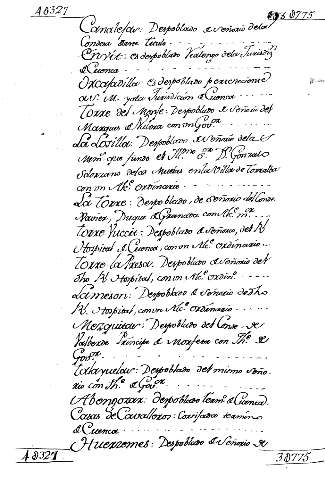 48327 38775
Canaleja: Despoblado de señorio de la
Condesa deste titulo
Envit: es despoblado Realengo de la Jurisdicn
de Cuenca
Orcajadilla: es despoblado perteneciente
a S. M. y a la Jurisdicion de Cuenca
Torre del Monje: Despoblado de Señorio del
Marques de Villena con un Govor
La Losilla: Despoblado de Señorio de la
que fundo el Illmo Sr Dn Gonzalo
Solorzano de las en la Villa de Torralba
con un Alce ordinario
La Torre: Despoblado, de señorio del Conde
Xavier, Duque de Granada con Alce mr
Torre Buceit: Despoblado de Señorio, del Rl
Hospital de Cuenca, con un Alce ordinario
Torre la Presa: Despoblado de Señorio de
dho Rl Hospital, con un Alce ordino
Lameson: Despoblado de Señorio de dho
Rl Hospital, con un Alce ordinario
Mezquitas: Despoblado del Conde de
Valverde Principe de Morfeta con The de
Govor
Talayuelas: Despoblado del mismo Seño-
rio con The de Govor
Abengozar: despoblado termo de Cuenca
Casas de Cavalloros: Cortijada termino
de Cuenca
Huerzemes: Despoblado de Señorio de
48327 38775